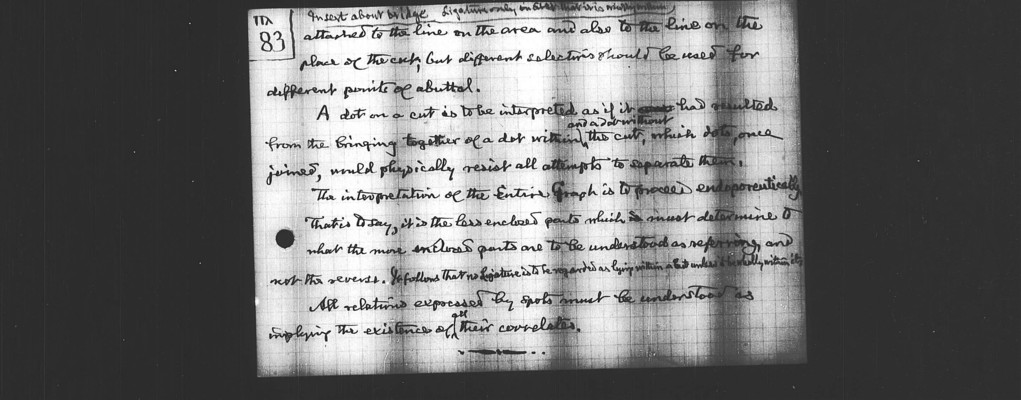 83
Insert about bridge Ligature only in
attached to the line on the area and also to the line on the
place of the cut, but different selectives should be used for
different points of abuttal.
A dot on a cut is to be interpreted as if it had resulted
and a dot without
from the bringing together of a dot within the cut, which dots, once
joined, would physically resist all attempts to separate them.
The interpretation of the Entire Graph is to proceed endoporeutically
That is to say, it is the less enclosed parts which must determine to
what the more enclosed parts are to be understood as referring, and
not the reverse. It follows that no Ligature is to be regarded as lying within a Cut unless it be wholly within it
All relations expressed by spots must be understood as
all
implying the existence of their correlates.